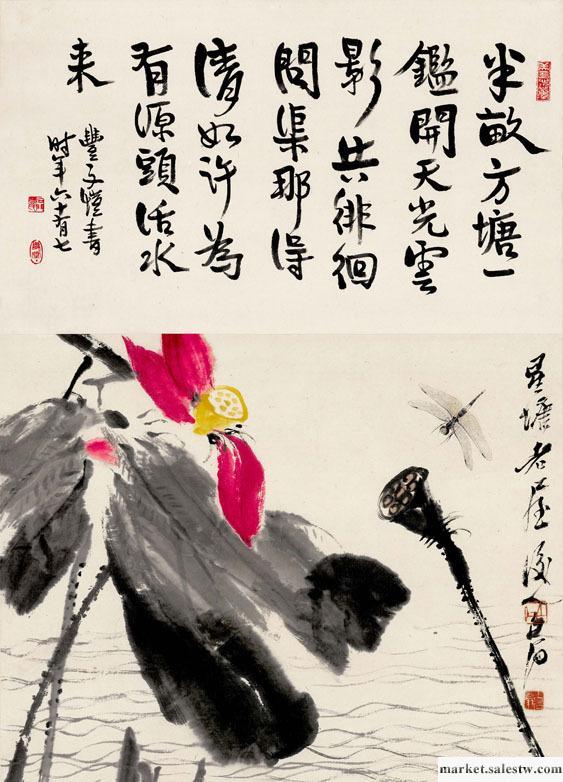 半畝方塘一
鑑開天光雲
影共徘徊
問渠那得
清如許为
有源頭活水
来
豐子愷書
时年六十有七
星塘老屋後人白石
market.salestw.com